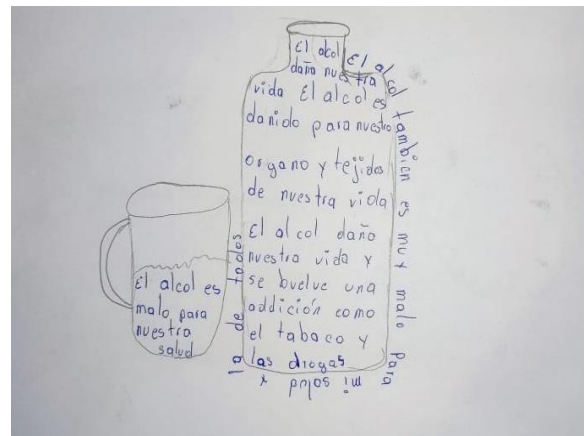 El alcol
daña nuestra
vida El alcol es
danido para nuestro
organo y tejidos
de nuestra vida
El alcol daño
nuestra vida y
se buelve una
addición como
el tabaco y
las drogas
El alcol tambien es muy malo para
mi salud y
la de todos
El alcol es
malo para
nuestra
salud